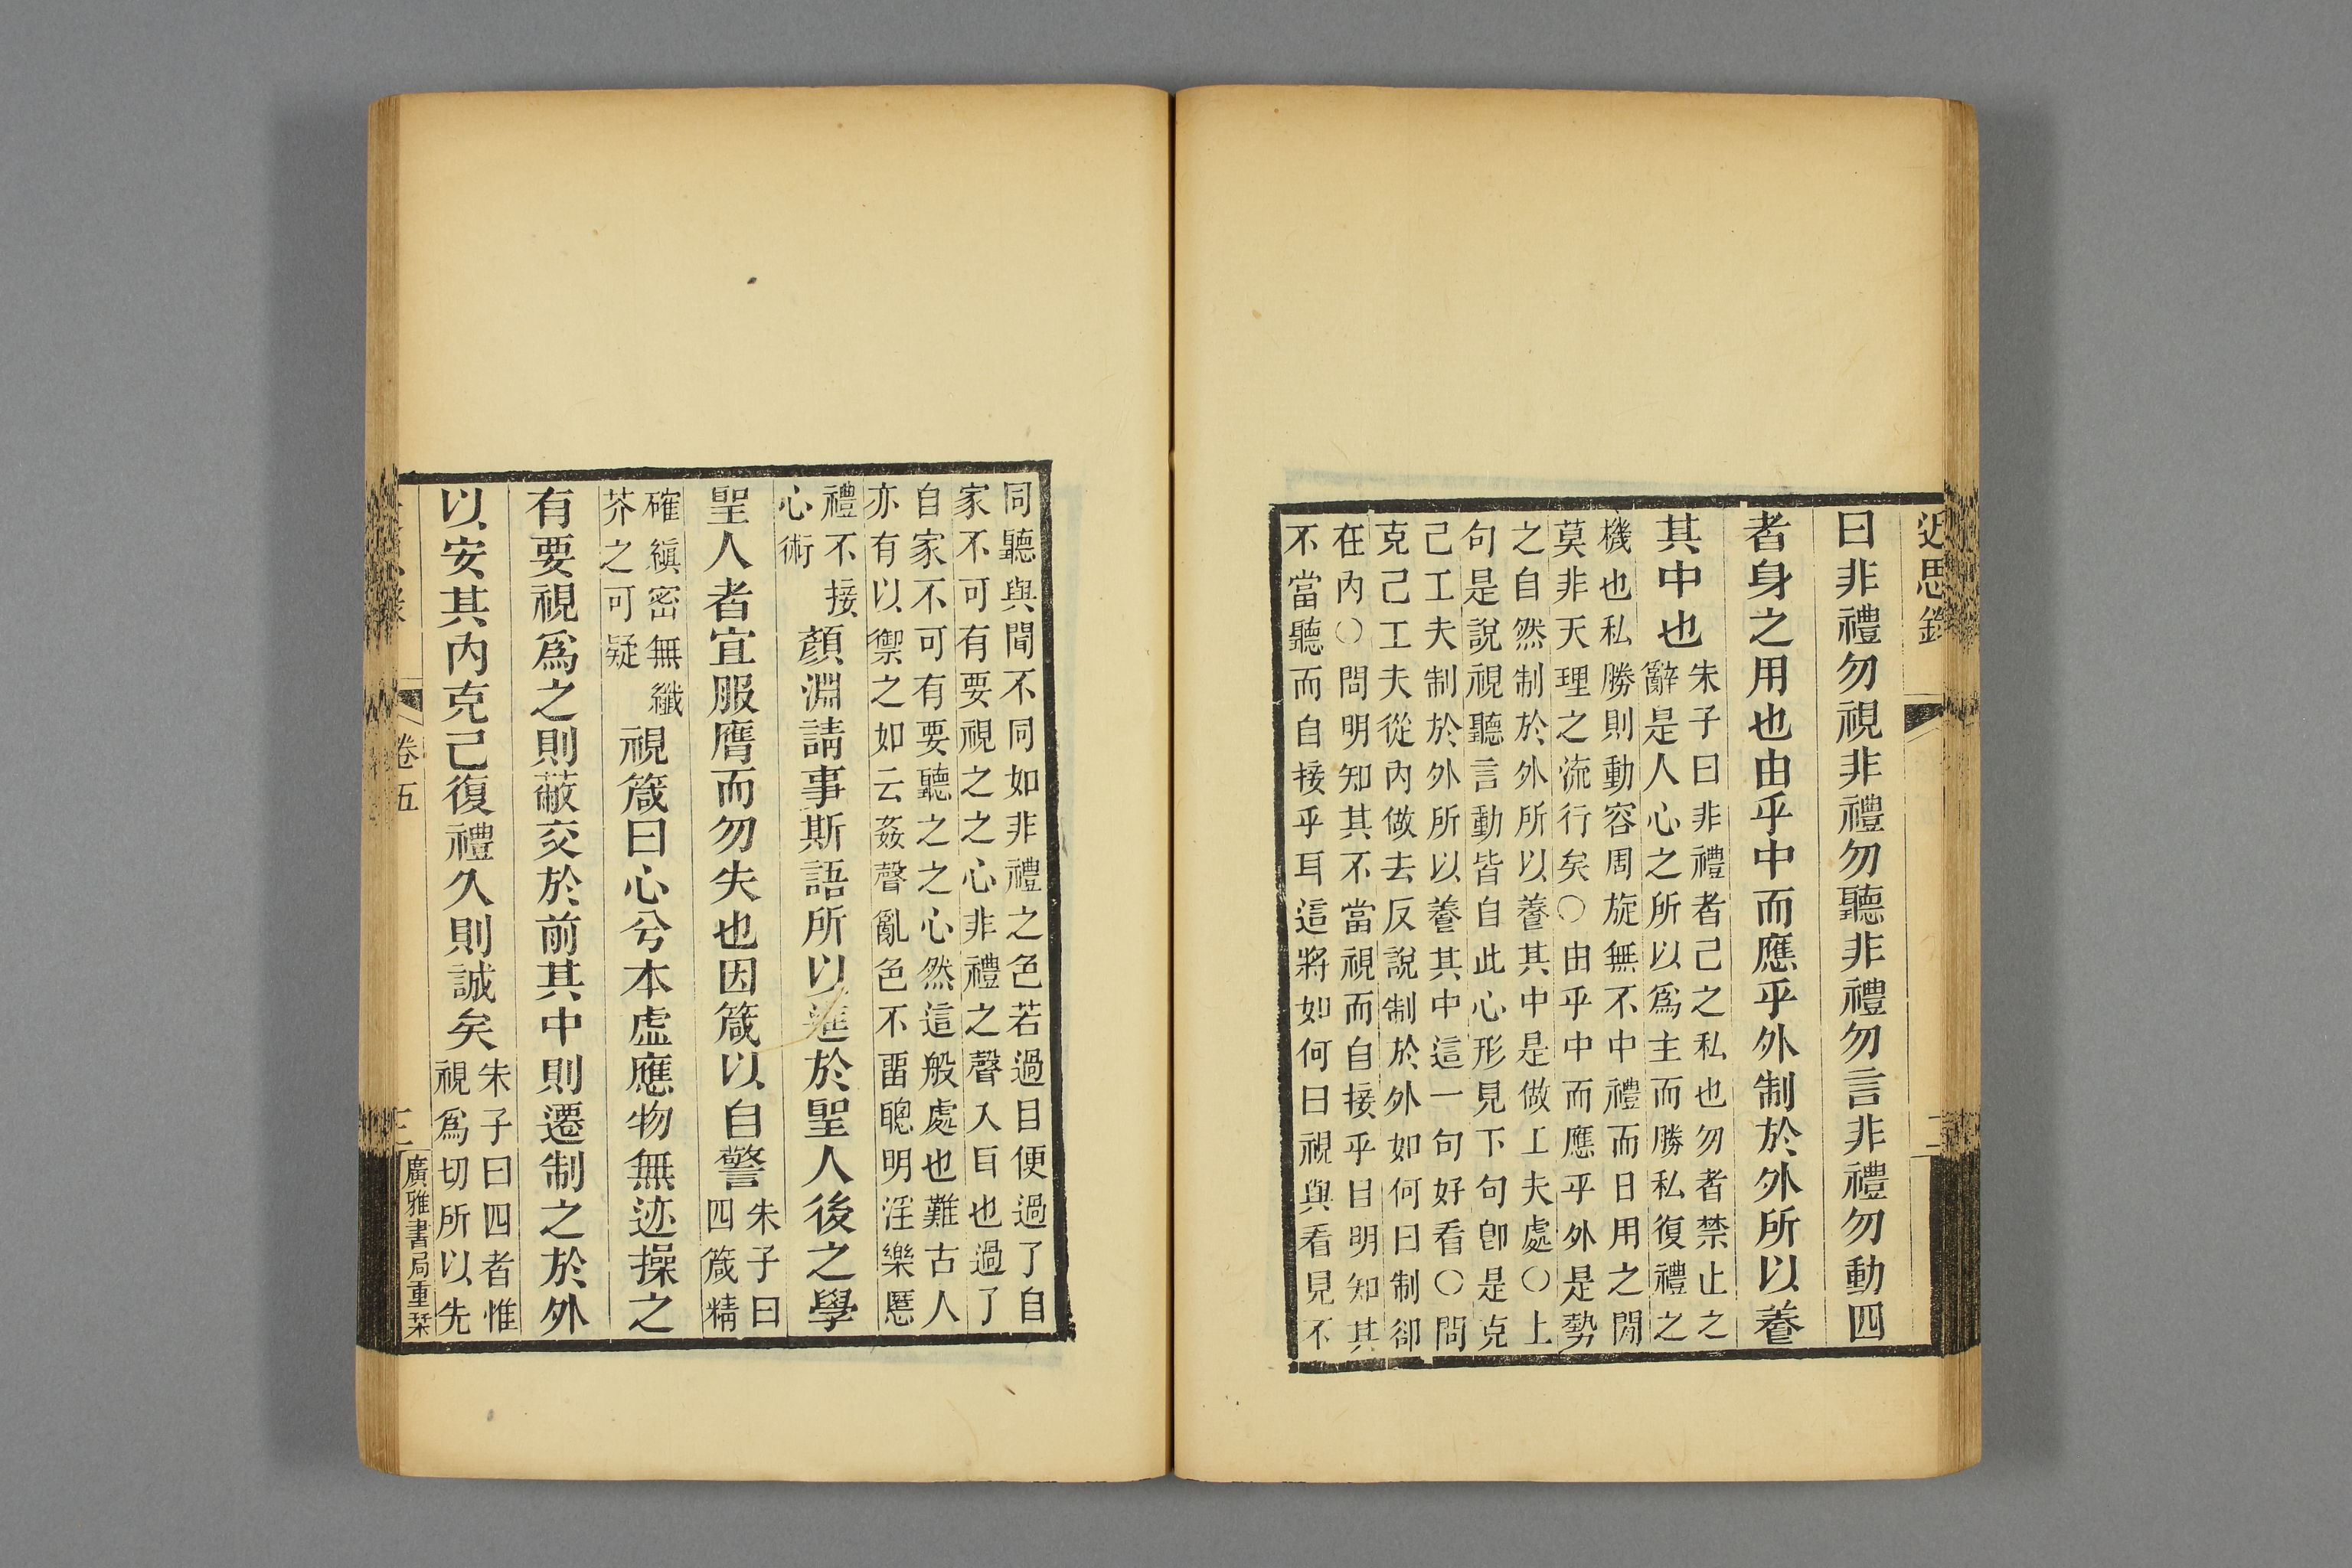 近思錄
二
曰非禮勿視非禮勿聽非禮勿言非禮勿動四
者身之用也由乎中而應乎外制於外所以養
其中也
朱子曰非禮者己之私也勿者禁止之
辭是人心之所以爲主而勝私復禮之
機也私勝則動容周旋無不中禮而日用之閒
莫非天理之流行矣○由乎中而應乎外是勢
之自然制於外所以養其中是做工夫處○上
句是說視聽言動皆自此心形見下句卽是克
己工夫制於外所以養其中這一句好看○問
克己工夫從內做去反說制於外如何曰制卻
在內○問明知其不當視而自接乎目明知其
不當聽而自接乎耳這將如何曰視與看見不
同聽與聞不同如非禮之色若過目便過了自
家不可有要視之之心非禮之聲入耳也過了
自家不可有要聽之之心然這般處也難古人
亦有以禦之如云姦聲亂色不畱聰明淫樂慝
禮不接
心術
顏淵請事斯語所以進於聖人後之學
聖人者宜服膺而勿失也因箴以自警
朱子曰
四箴精
確縝密無纖
芥之可疑
視箴曰心兮本虛應物無迹操之
有要視爲之則蔽交於前其中則遷制之於外
以安其內克己復禮久則誠矣
朱子曰四者惟
視爲切所以先
卷五
三
廣雅書局重栞